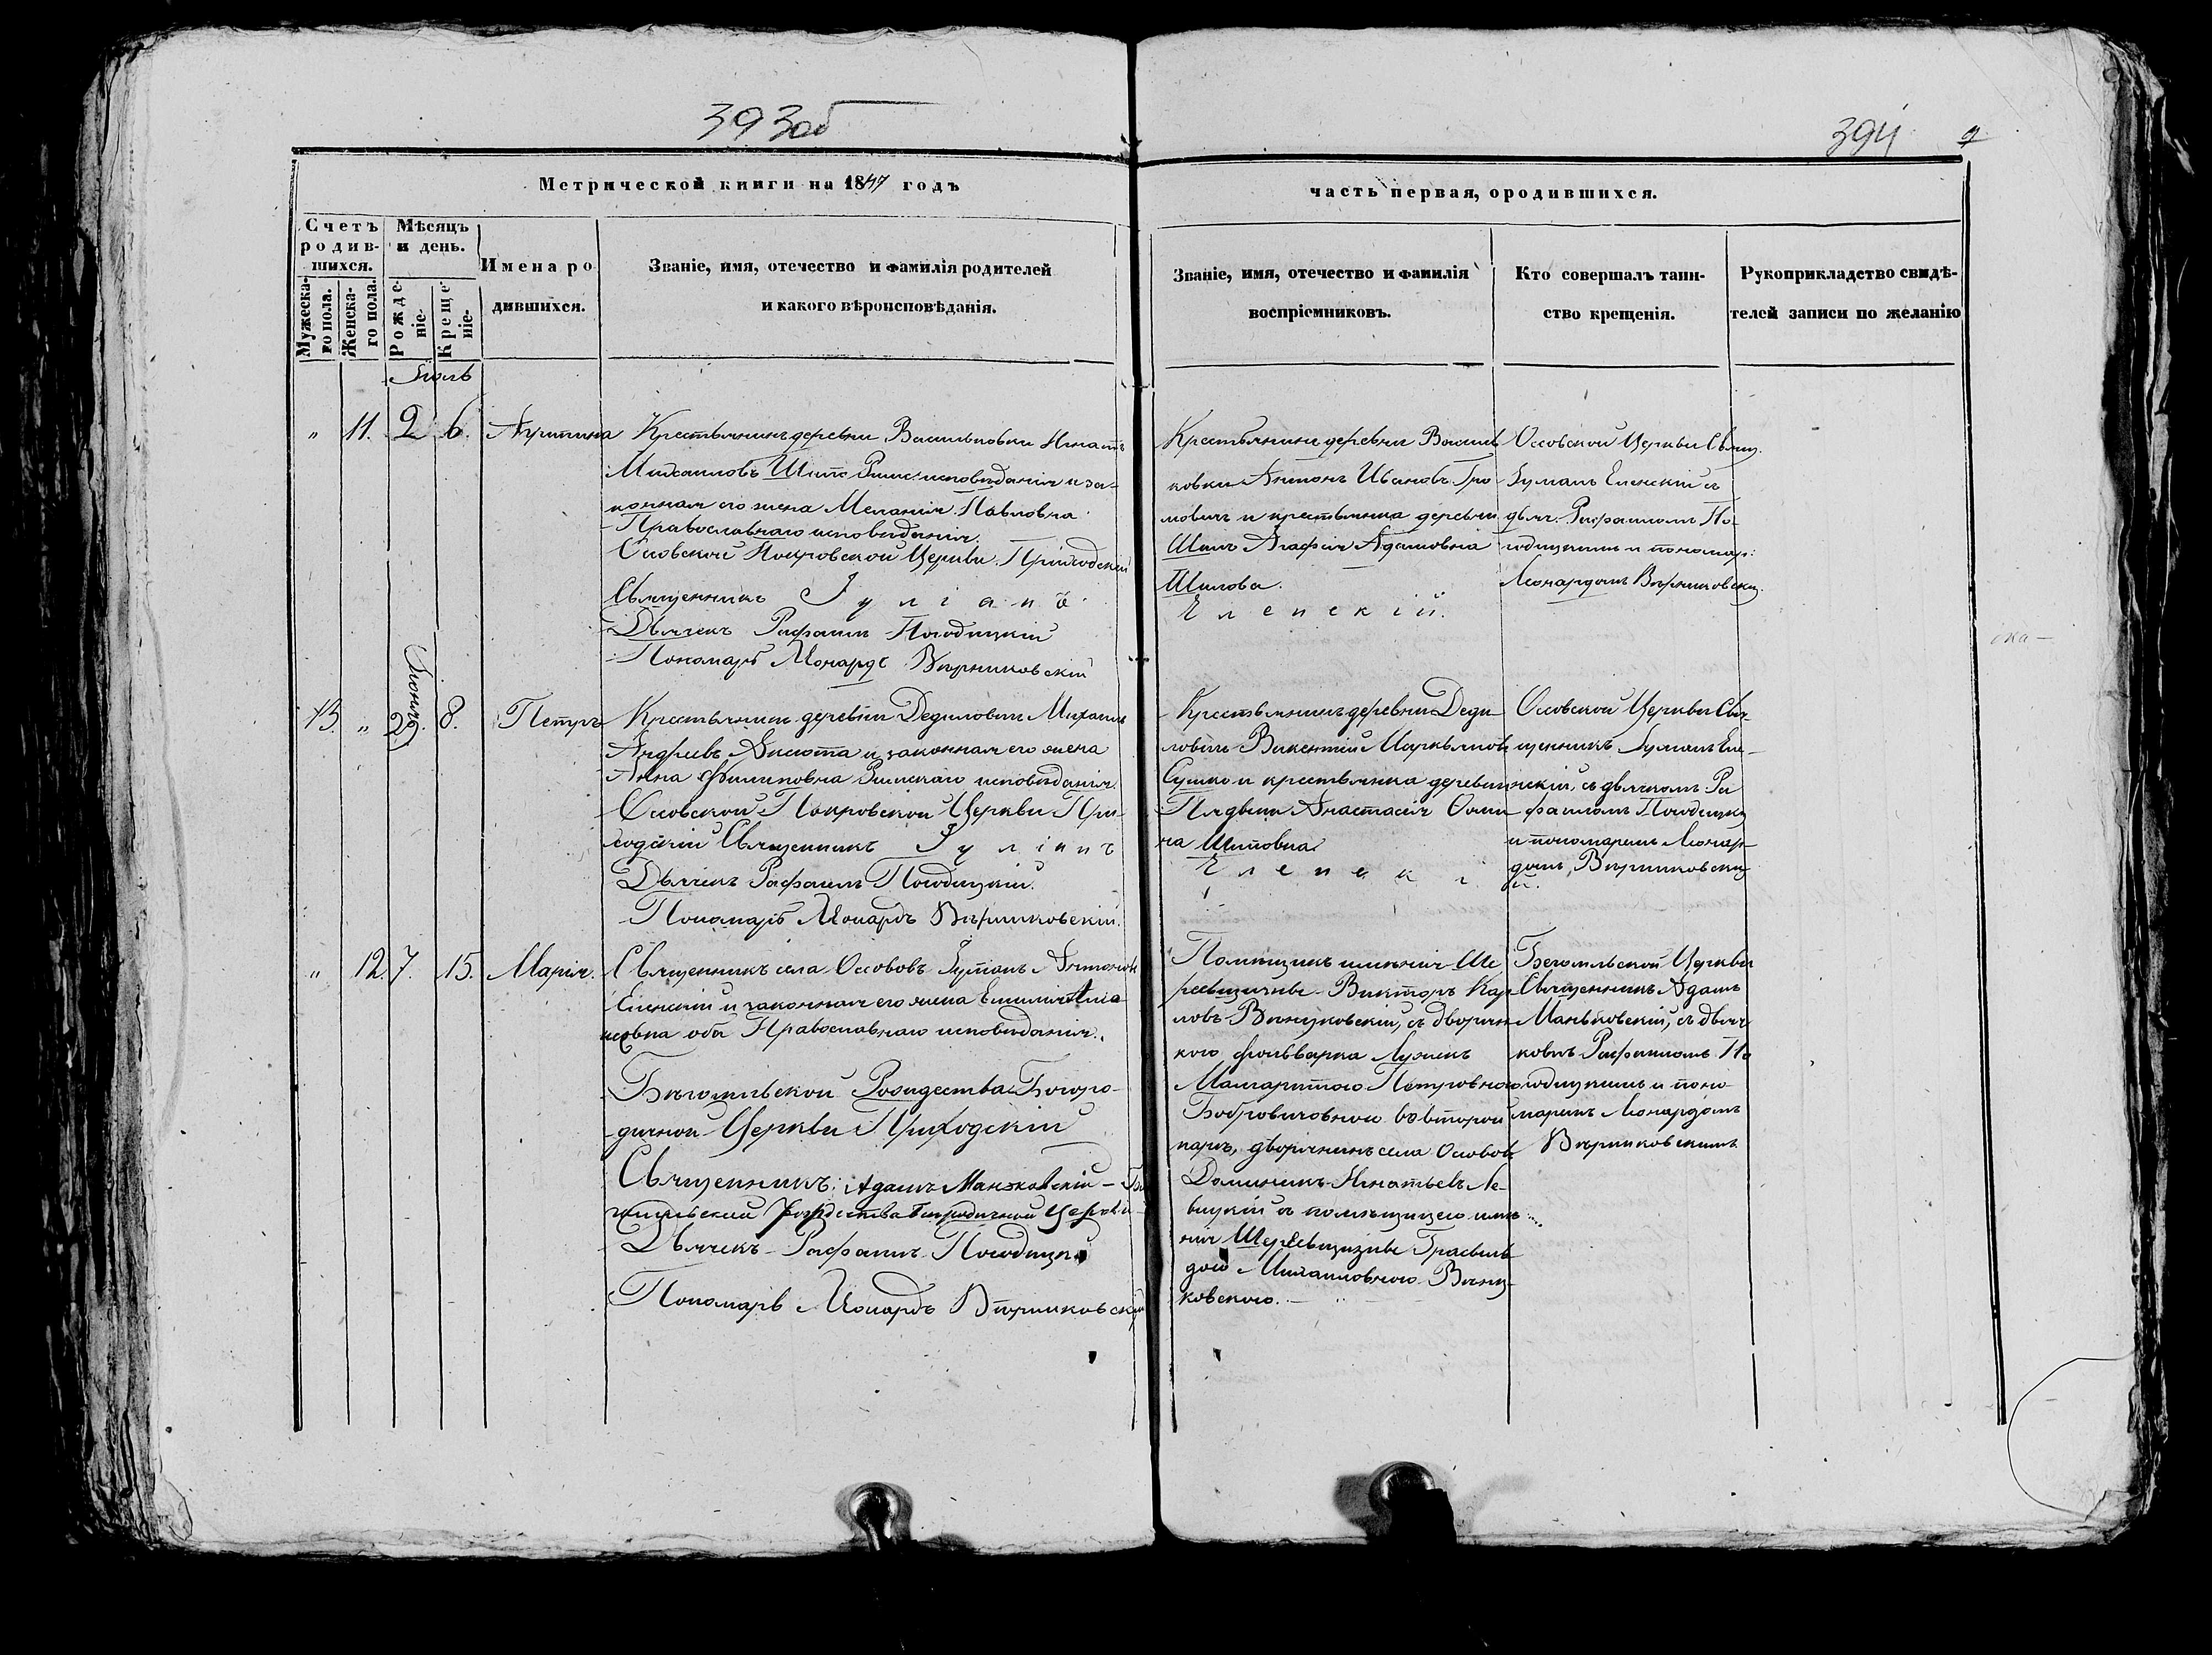 393об
394
9
Метрической книги на 1847 годъ
часть первая, ородившихся.
Счетъ родив-шихся.
Мѣсяцъ и день.
Имена ро
дившихся.
Званіе, имя, отечество и фамилія родителей
и какого вѣроисповѣданія.
Званіе, имя, отечество и фамилія
воспріемниковъ.
Кто совершалъ таин-
ство крещенія.
Рукоприкладство свидѣ-
телей записи по желанію
Мужеска-го пола.
Женска-го пола.
Рожде-ніе.
Креще-ніе.
Июль
" 11. 2 6.
Крестьянинъ деревни Васильковки Игнатъ
Михаиловъ Шило Римс. исповѣданія и за-
конная его жена Меланія Павловна
Православнаго исповѣданія.
Осовской Покровской Церкви Приходскій
Священникъ Іуліанъ
Дьячекъ Рафаилъ Погодицкій
Пономарь Леонардъ Вѣрниковскій
Крестьянинъ деревни Василь
ковки Антонъ Ивановъ Гро
мовичъ и крестьянка деревни
Шилъ Агафія Адамовна
Шилова.
Еленскій.
Оссовской Церкви Свящ.
Іуліанъ Еленскій съ
дьяч. Рафаиломъ По-
годицкимъ и пономар:
Леонардомъ Вѣрниковски.
Іюнь
13. " 29. 8. Петръ
Крестьянинъ деревни Дедиловичъ Михаилъ
Андреевъ Аксюта и законная его жена
Анна Филиповна Римскаго исповѣданія.
Оссовской Покровской Церкви При-
ходскій Священникъ Іуліанъ
Дьячекъ Рафаилъ Погодицкій.
Пономарь Леонардъ Вѣрниковскій.
Крестьянинъ деревни Деди-
ловичъ Викентій Маркьяновъ
Сушко и крестьянка деревни
Анастасія Фоми
на Шиповна
Еленскій.
Оссовской Церкви Свя-
щенникъ Іуліанъ Еле-
нскій, съ дьячкомъ Ра
фаиломъ Погодицки
и пономаремъ Леонар-
домъ Вѣрниковски
" 12. 7. 15. Марія.
Священникъ села Оссововъ Іуліанъ Антоновъ
Еленскій и законная его жена Емилія
оба Православнаго исповѣданія.
Бѣгомльской Рождества Богоро-
дичной Церкви Приходскій
Священникъ: Адамъ Маньковскій – Бѣ
гомльской Рождества Богородичной Церкви
Дьячекъ Рафаилъ Погодицкій
Пономарь Леонардъ Вѣрниковскій
Помѣщикъ имѣнія Ше
Викторъ Кар
ловъ съ дворян
кою фольварка
Маргаритою Петровною
Бобровичовною во второй
паре, дворянинъ села Осовов
Доминикъ Игнатьевъ Ле-
вицкій съ помѣщицею имѣ
нія
дою Михаиловною
ковскою.
Бегомльской Церкви
Священникъ Адамъ
Маньковскій, съ дьяч
комъ Рафаиломъ По
годицкимъ и поно-
маремъ Леонардомъ
Вѣрниковскимъ
ока –